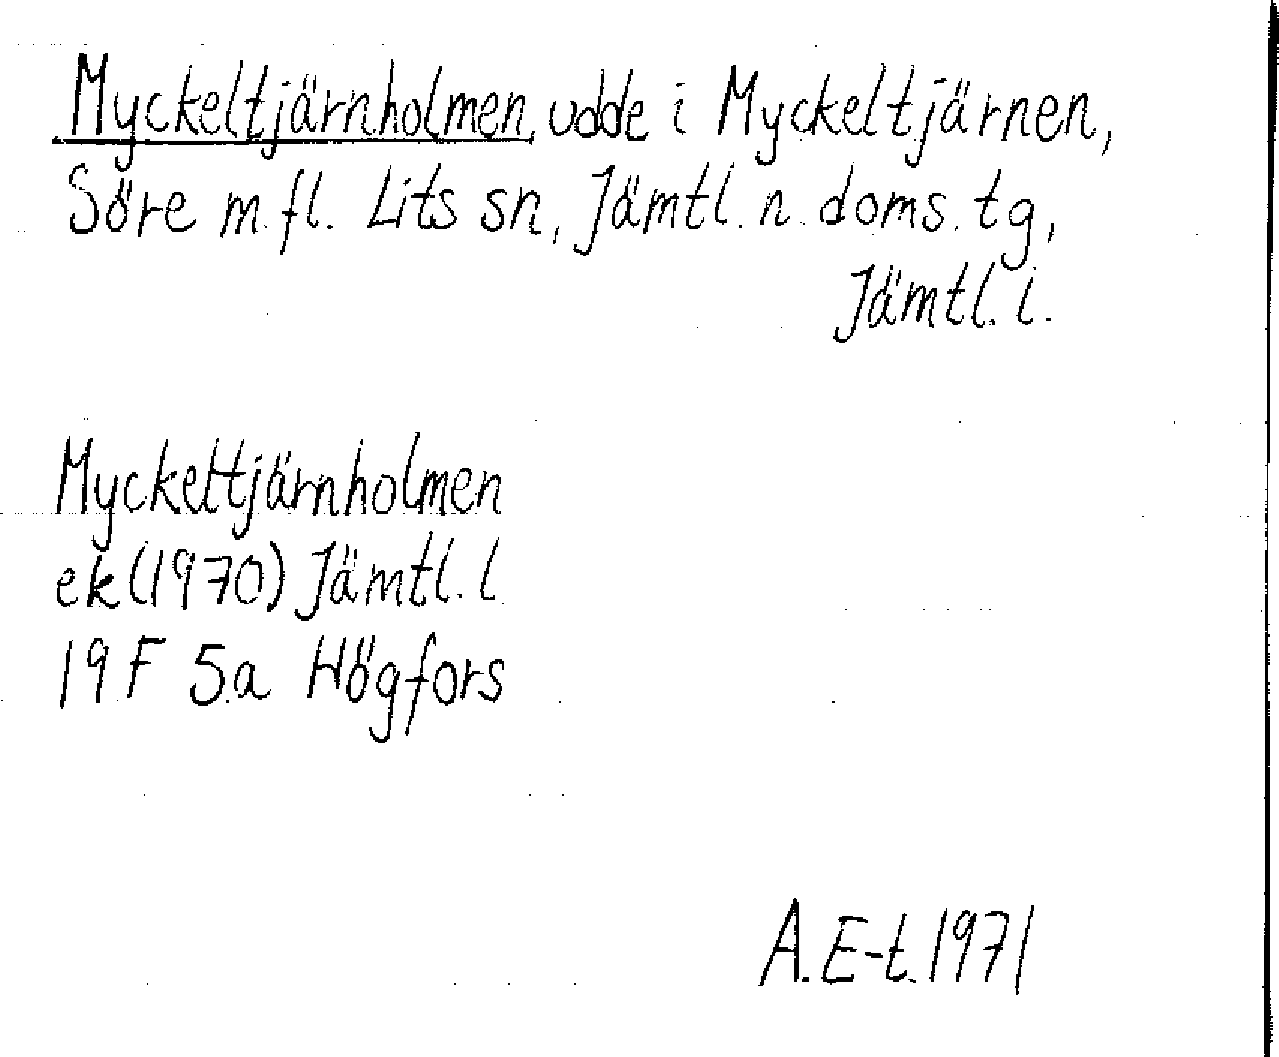 Myckeltjärnholmen, udde i Myckeltjärnen,
Söre m.fl. Lits sn, Jämtl. n. doms. tg,
Jämtl. l.
Myckeltjärnholmen
ek (1970) Jämtl. l
19F 5.a Högfors
A.E-t. 1971